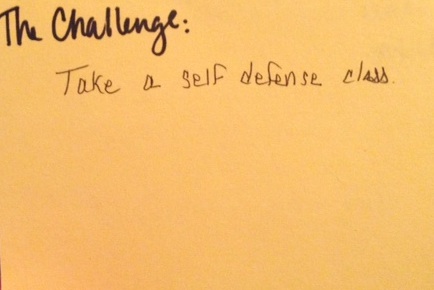 The Challenge:
Take a self defense class.